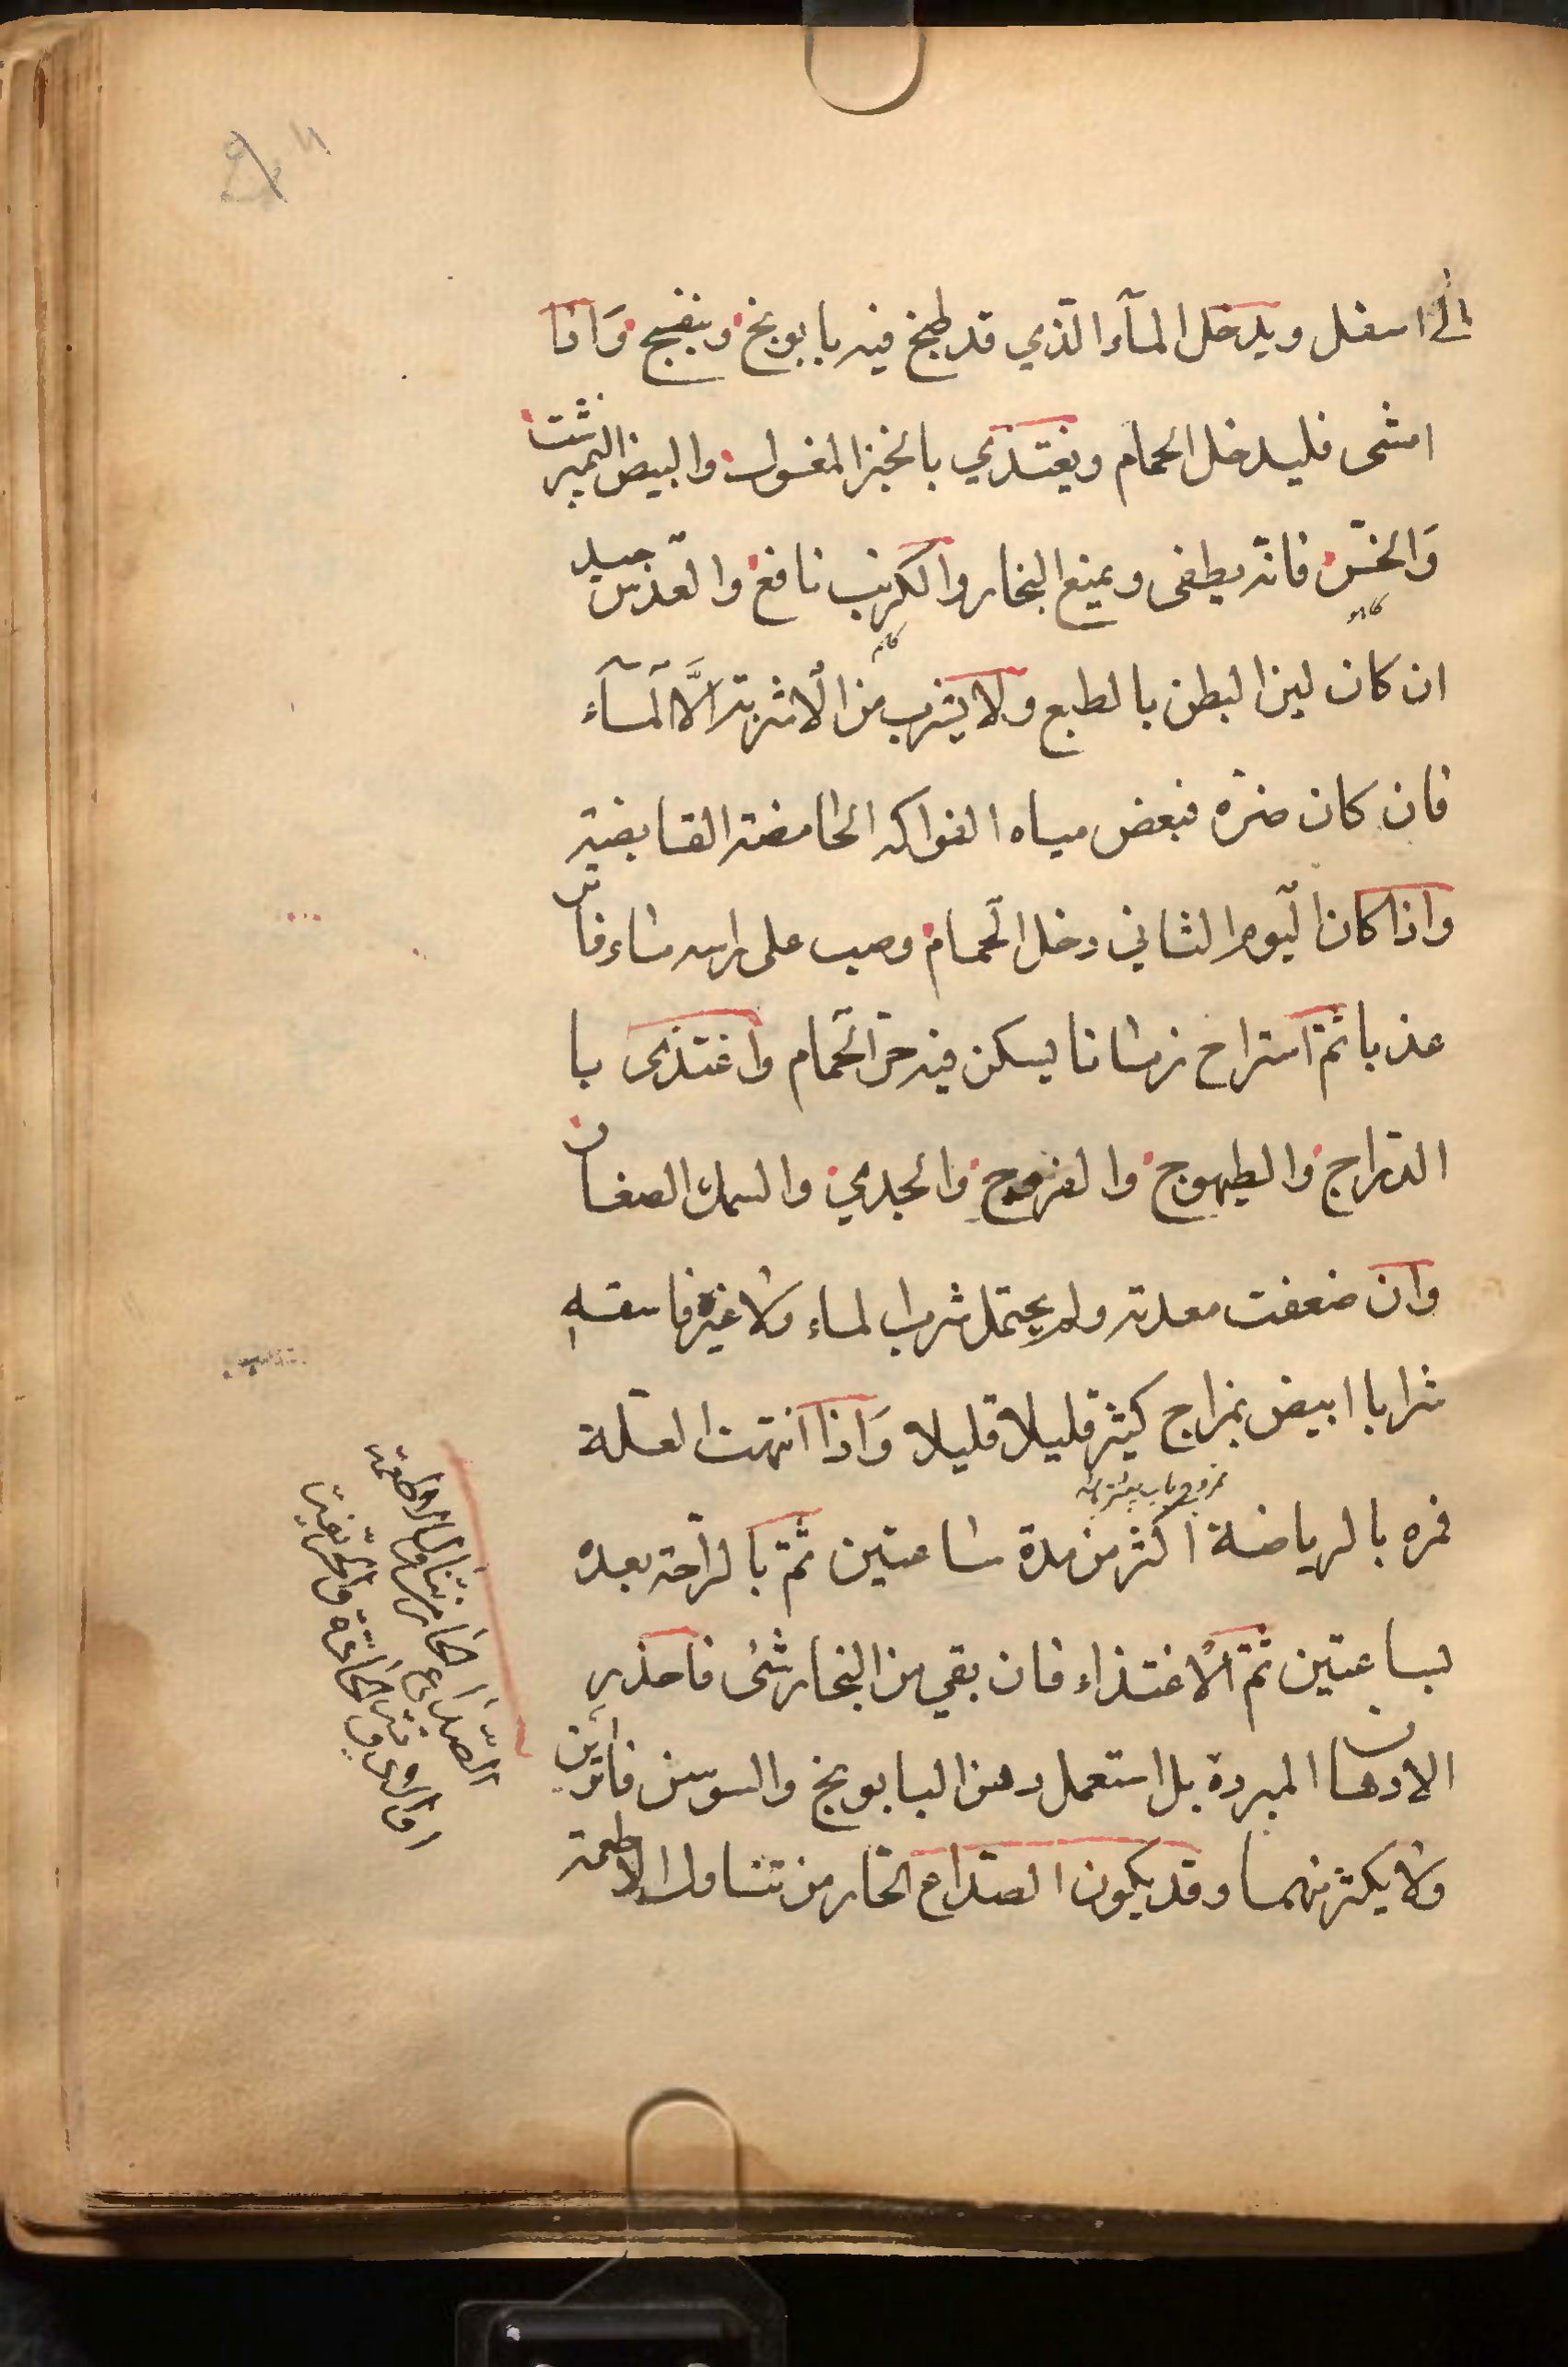 الى اسفل ويدخل المآء الّذي قد طبخ فيه بابونج وبنفسج وَاذا
امشى فليدخل الحمام ويغتذي بالخبز المغسول والبيض النمبرشت
وَالخسّ فانّه يطفى ويمنع البخار والكرنب نافع والعدس جيد
ان كان لين البطن بالطبع ولا يشرب من الأشربة الَّا المآء
فان كان ضرّه فبعض مياه الفواكه الحامضة القابضة
واذا كان اليوم الثاني دخل الحمام وصب على راسه ماء فاتر
عذبا ثمّ استراح زمانا يسكن فيه حرّ الحمام واغتذى با
الدّراج والطيهوج والفروج والجدي والسمك الصغار
وان ضعفت معدته ولم يحتمل شرب الماء ولا غيره فاسقه
شرابا ابيض بمزاج كثير قليلا قليلا وَاذا انتهت العلّة
فمره بالرياضة اكثر من مدة ساعتين ثمّ بالرّاحة بعده
بساعتين ثمّ الأغتذاء فان بقي من البخار شئ فاحذر
الادهان المبردة بل استعمل دهن البابونج والسوسن فاترين
ولا يكثر منهما وقد يكون الصّداع الحار من تناول الاطعمة
الصّداع الحار من تناول الاطعمة